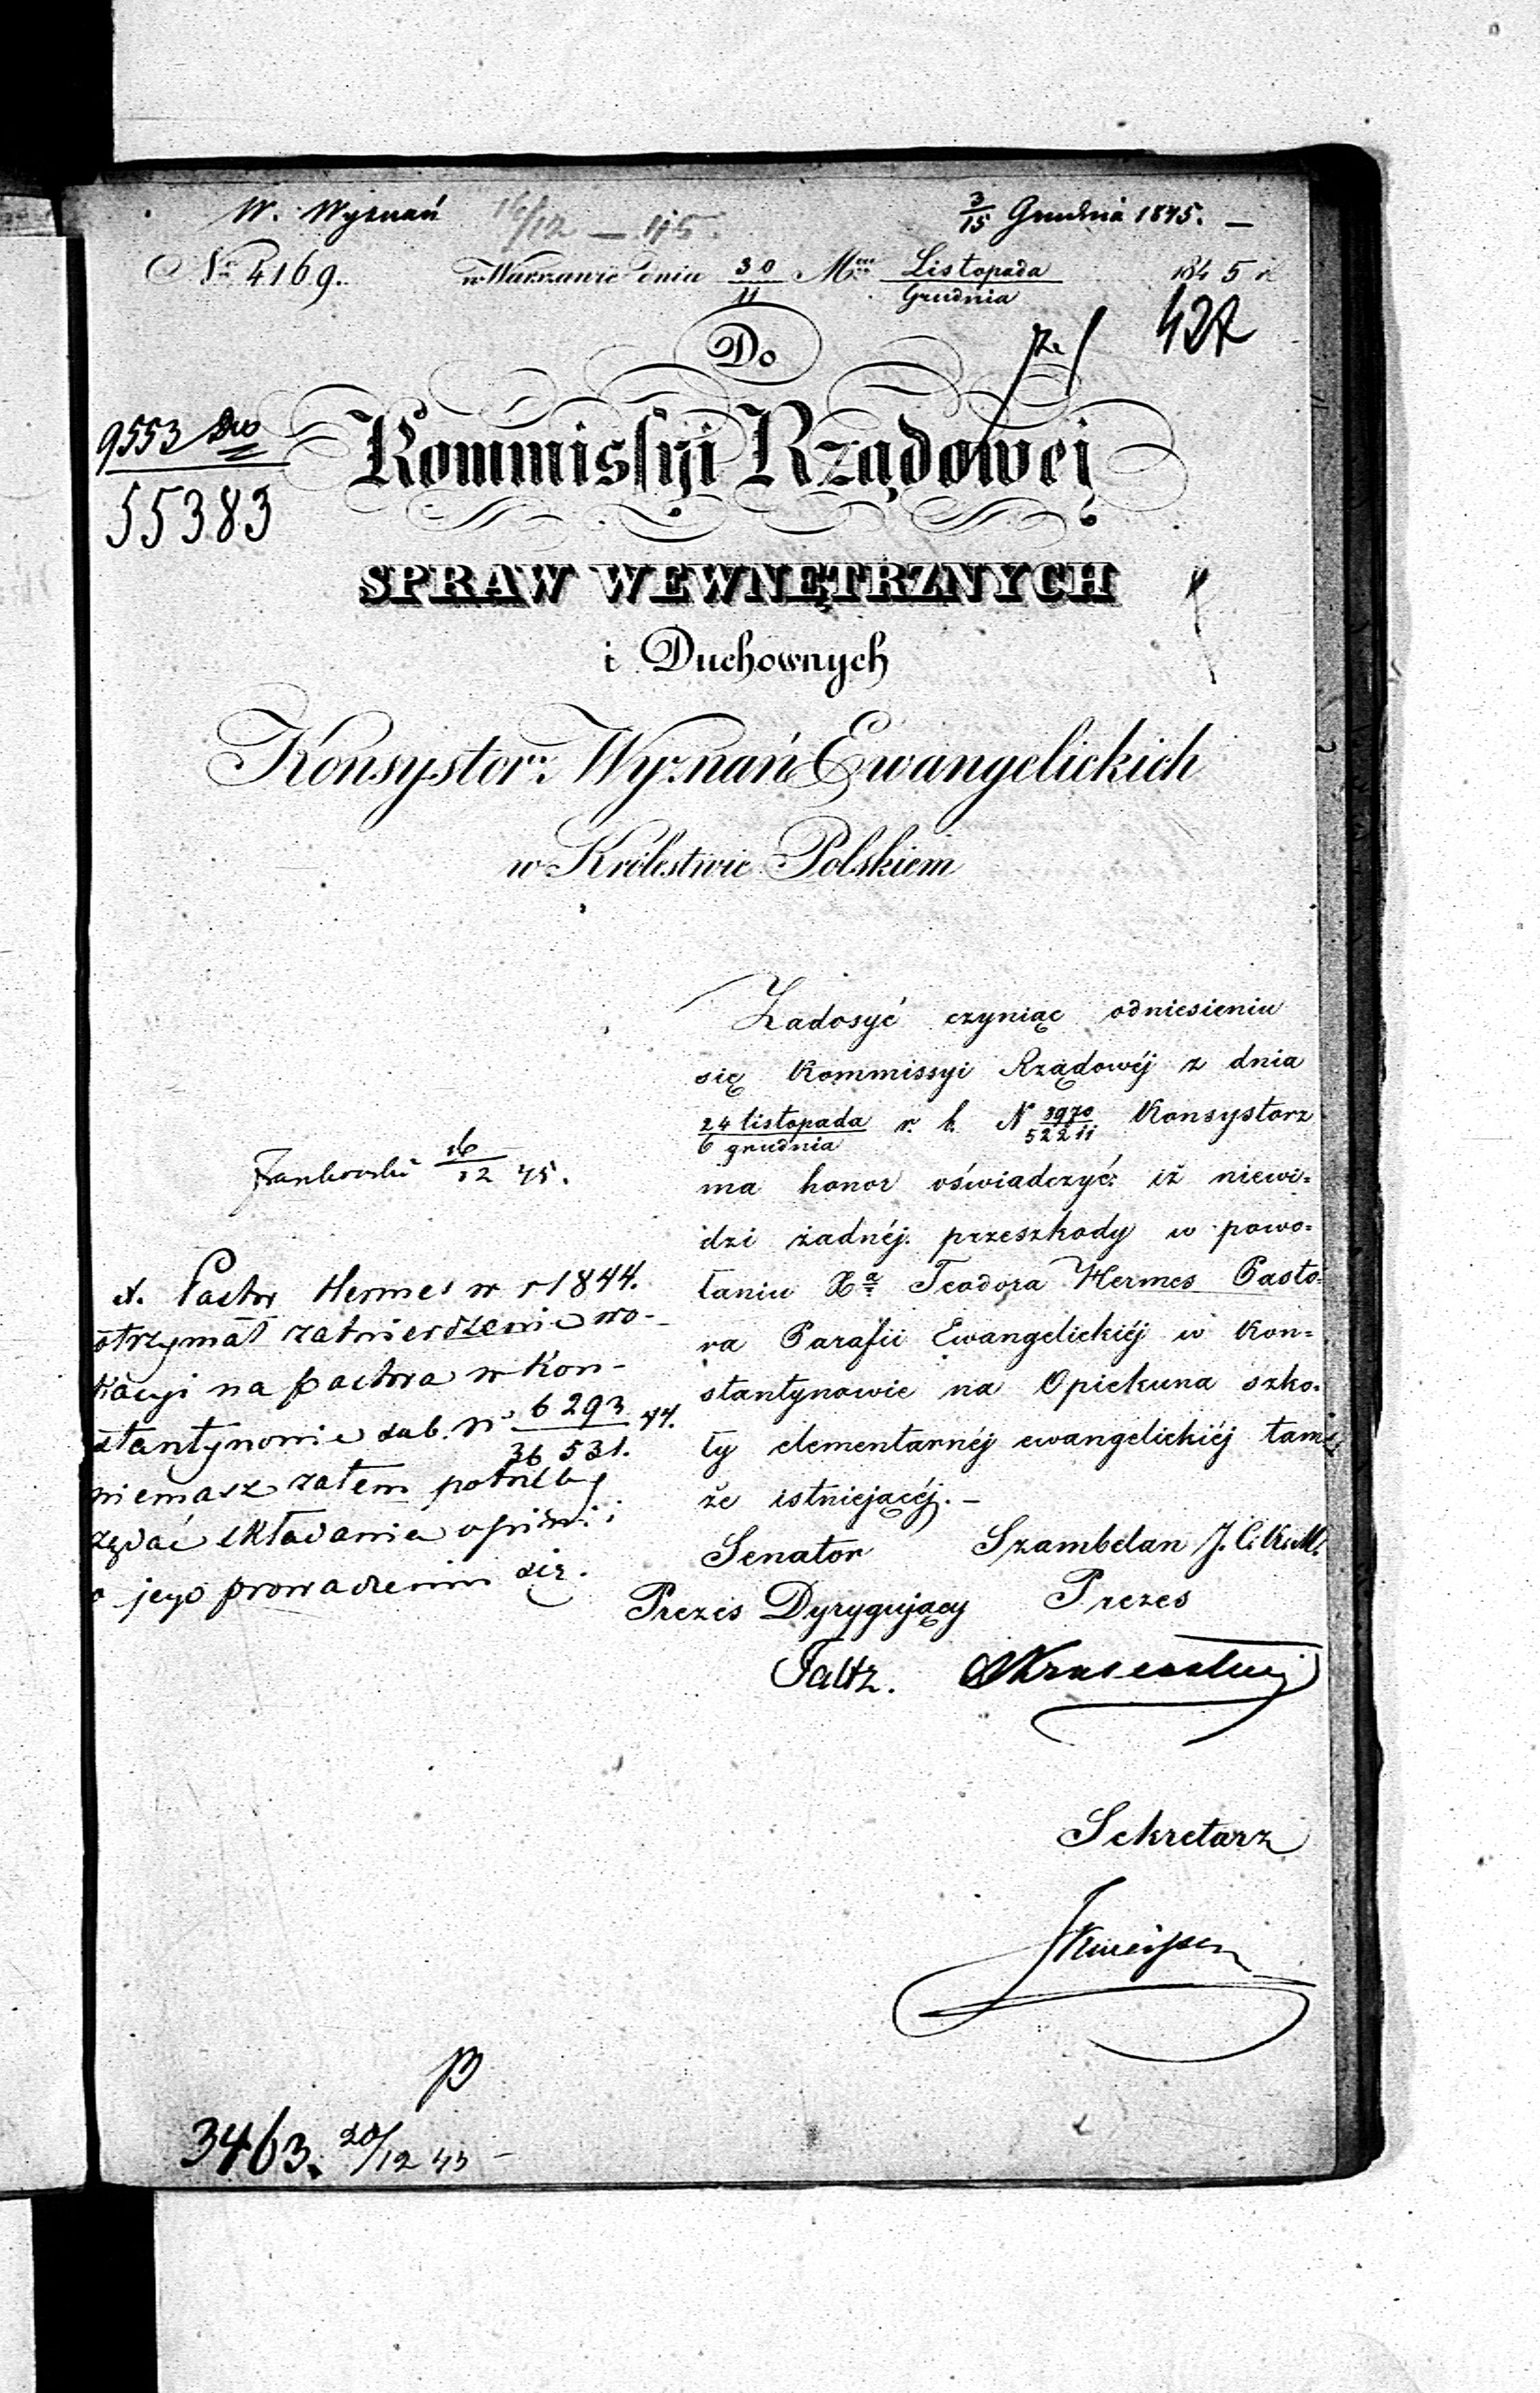 W. Wyznań 16/12 — 45. 3/15 Grudnia 1845. —
№ 4169. w Warszawie dnia 30/11 Mca Listopada/Grudnia 1845 r.
427
Do
9553
55383
Kommissyi Rządowej
SPRAW WEWNĘTRZNYCH
i Duchownych
Konsystorz Wyznań Ewangelickich
w Królestwie Polskiem
Zadosyć czyniąc odniesieniu
się Kommissyi Rządowéj z dnia
24 listopada/6 grudnia r. b. N 3970/52211 Konsystorz
ma honor oświadczyć: iż niewi=
dzi żadnéj przeszkody w powo=
łaniu Xa Teodora Hermes Pasto=
ra Parafii Ewangelickiéj w Kon=
stantynowie na Opiekuna szko=
ły elementarnéj ewangelickiéj tam=
że istniejącéj. —
Senator Szambelan J. C. K. M.
Prezes Dyrygujący Prezes
Faltz.
Sekretarz
16/12 45.
Pastor Hermes w r 1844.
otrzymał zatwierdzenie wo-
kacyi na pastora w Kon-
stantynowie sub. N 6293/36531. 44.
niemasz zatem potrzeby
żądać składania opinii
o jego prowadzeniu się.
3463. 20/12 45